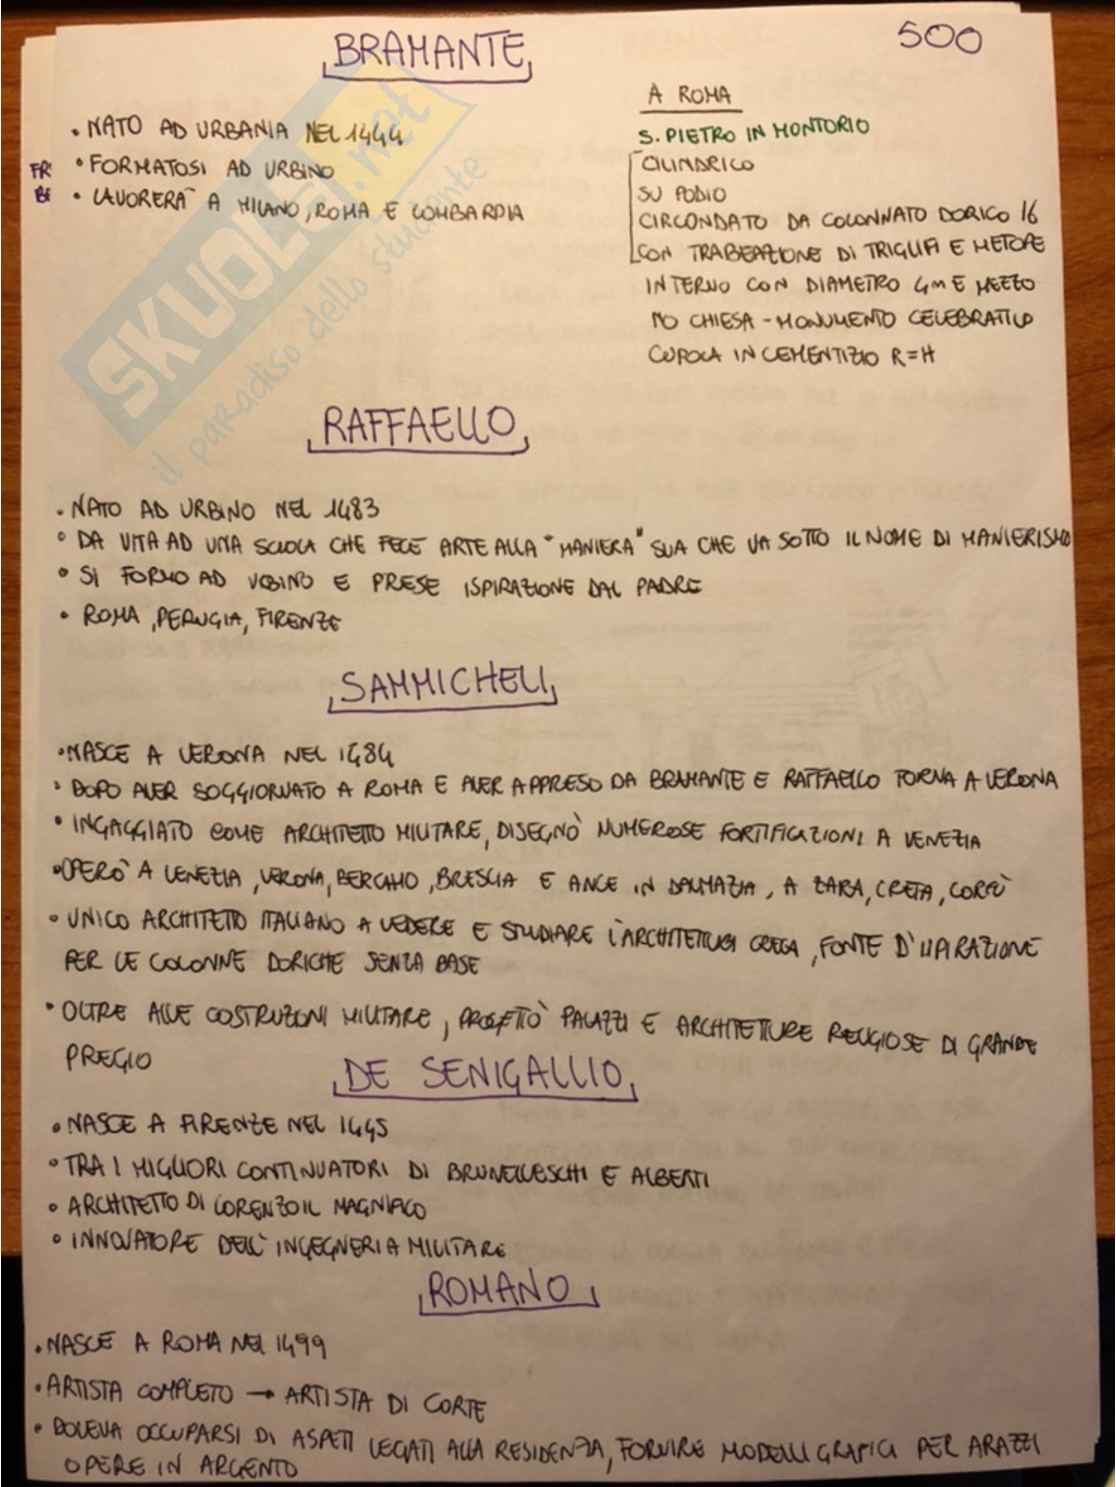 BRAMANTE
500
• NATO AD URBANIA NEL 1444
FR • FORMATOSI AD URBINO
BE • LAVORERA' A MILANO, ROMA E LOMBARDIA
A ROMA
S. PIETRO IN MONTORIO
CILINDRICO
SU PODIO
CIRCONDATO DA COLONNATO DORICO 16
CON TRABEAZIONE DI TRIGLIFI E METOPE
INTERNO CON DIAMETRO 4m E MEZZO
NO CHIESA - MONUMENTO CELEBRATIVO
CUPOLA IN CEMENTIZIO R=H
SKUOLA.net
il paradiso dello studente
RAFFAELLO
• NATO AD URBINO NEL 1483
• DA VITA AD UNA SCUOLA CHE FECE ARTE ALLA "MANIERA" SUA CHE VA SOTTO IL NOME DI MANIERISMO
• SI FORMO AD URBINO E PRESE ISPIRAZIONE DAL PADRE
• ROMA, PERUGIA, FIRENZE
SAMMICHELI
• NASCE A VERONA NEL 1484
• DOPO AVER SOGGIORNATO A ROMA E AVER APPRESO DA BRAMANTE E RAFFAELLO TORNA A VERONA
• INGAGGIATO COME ARCHITETTO MILITARE, DISEGNÒ NUMEROSE FORTIFICAZIONI A VENEZIA
• OPERÒ A VENEZIA, VERONA, BERGAMO, BRESCIA E ANCE IN DALMAZIA, A ZARA, CRETA, CORFÙ
• UNICO ARCHITETTO ITALIANO A VEDERE E STUDIARE L'ARCHITETTURA GRECA, FONTE D'ISPIRAZIONE
PER LE COLONNE DORICHE SENZA BASE
• OLTRE ALLE COSTRUZIONI MILITARE, PROGETTÒ PALAZZI E ARCHITETTURE RELIGIOSE DI GRANDE
PREGIO
DE SENIGALLIO
• NASCE A FIRENZE NEL 1445
• TRA I MIGLIORI CONTINUATORI DI BRUNELLESCHI E ALBERTI
• ARCHITETTO DI LORENZO IL MAGNIFICO
• INNOVATORE DELL'INGEGNERIA MILITARE
ROMANO
• NASCE A ROMA NEL 1499
• ARTISTA COMPLETO → ARTISTA DI CORTE
• DOVEVA OCCUPARSI DI ASPETTI LEGATI ALLA RESIDENZA, FORNIRE MODELLI GRAFICI PER ARAZZI
OPERE IN ARGENTO